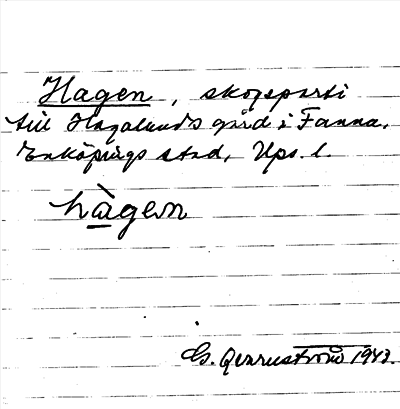 Hagen, skogsparti
till Hagalunds gård i Fanna,
Enköpings stad, Ups. l.
hàgen
G. 1943.